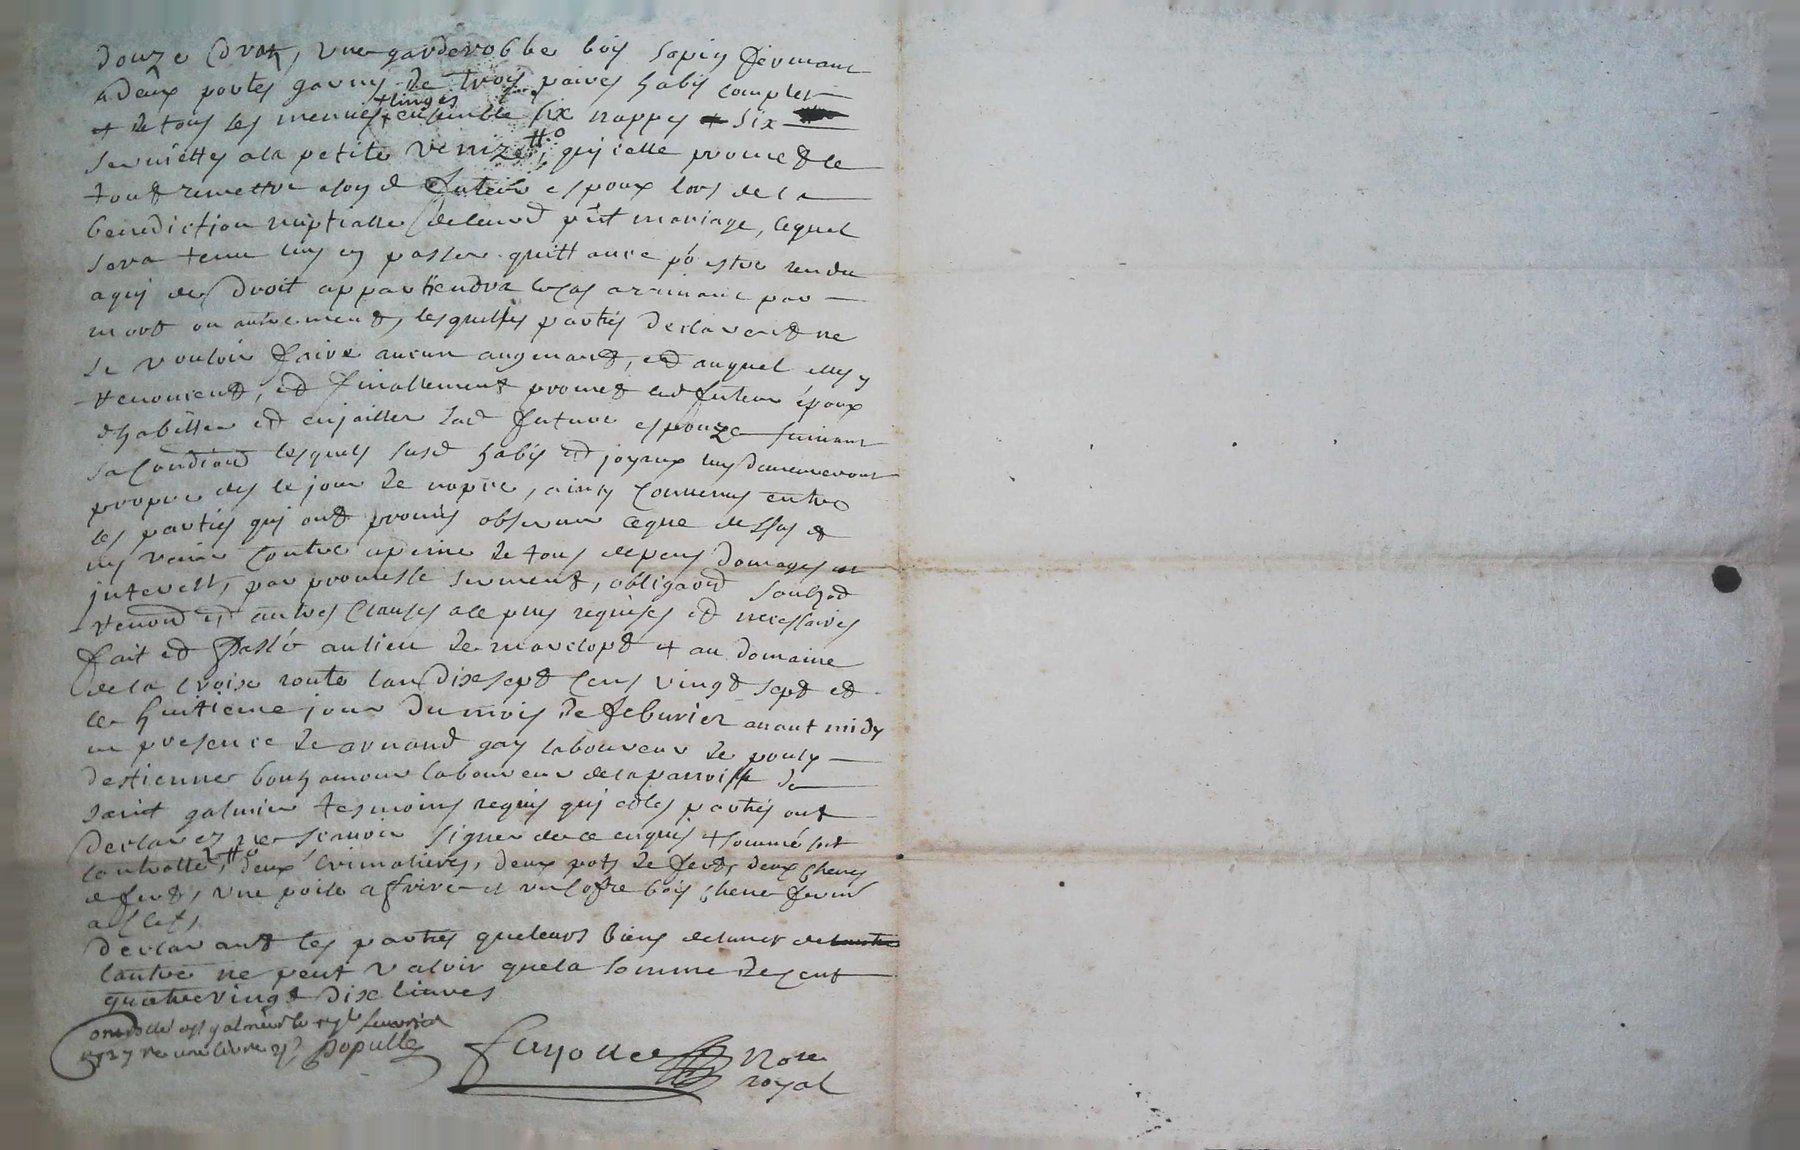 douze draz, une garderobbe bois sapin fermant
a deux portes garny de trois paires habis complet
+ linges
+ de tous ses menues + ensemble six nappes + six
serviettes a la petite venize #, qu'icelle promet le
tout remettre a son d futeur espoux lors de la
benediction nuptialle de leurd pñt mariage, lequel
sera tenu luy en passer quittance pr estre rendu
a qui de droit appartiendra le cas arrivant par
mort ou autrement, lesquelles parties declarent ne
se vouloir faire aucun augmant, et auquel elles y
renoncent, et finallement promet led futeur époux
d'habiller et enjoailler sad future espouze suivant
sa condiond lesquels susd habis et joyaux luy demeureront
propre des le jour de nopce, ainsy convenus entre
les parties qui ont promis observer ce que dessus et
ny venir contre a peine de tous depens domages et
interest, par promesse serment, obligaond soubzod
renond et autres clauses a ce plus requises et necessaires
fait et passé au lieu de marclopt + au domaine
de la croise route l'an dix sept cens vingt sept et
le huitieme jour du mois de feburier avant midy
en presence de arnaud gay laboureur de pouly
d'estienne bouhamour laboureur de la parroisse de
saint galmier tesmoins requis qui et les parties ont
declarez ne scavoir signer de ce enquis + sommé soit
controllé, # deux crimalieres, deux pots de fert, deux chenes
de fert, une poile a frire et un cofre bois chene fermt
a clef,
declarant les parties que leurs biens de l'un et de
l'autre ne peut valoir que la somme de cent
quatre vingt dix livres
Controllé a st galmier le feuvrier
1727 re une livre Populle
fayolle Nore
royal